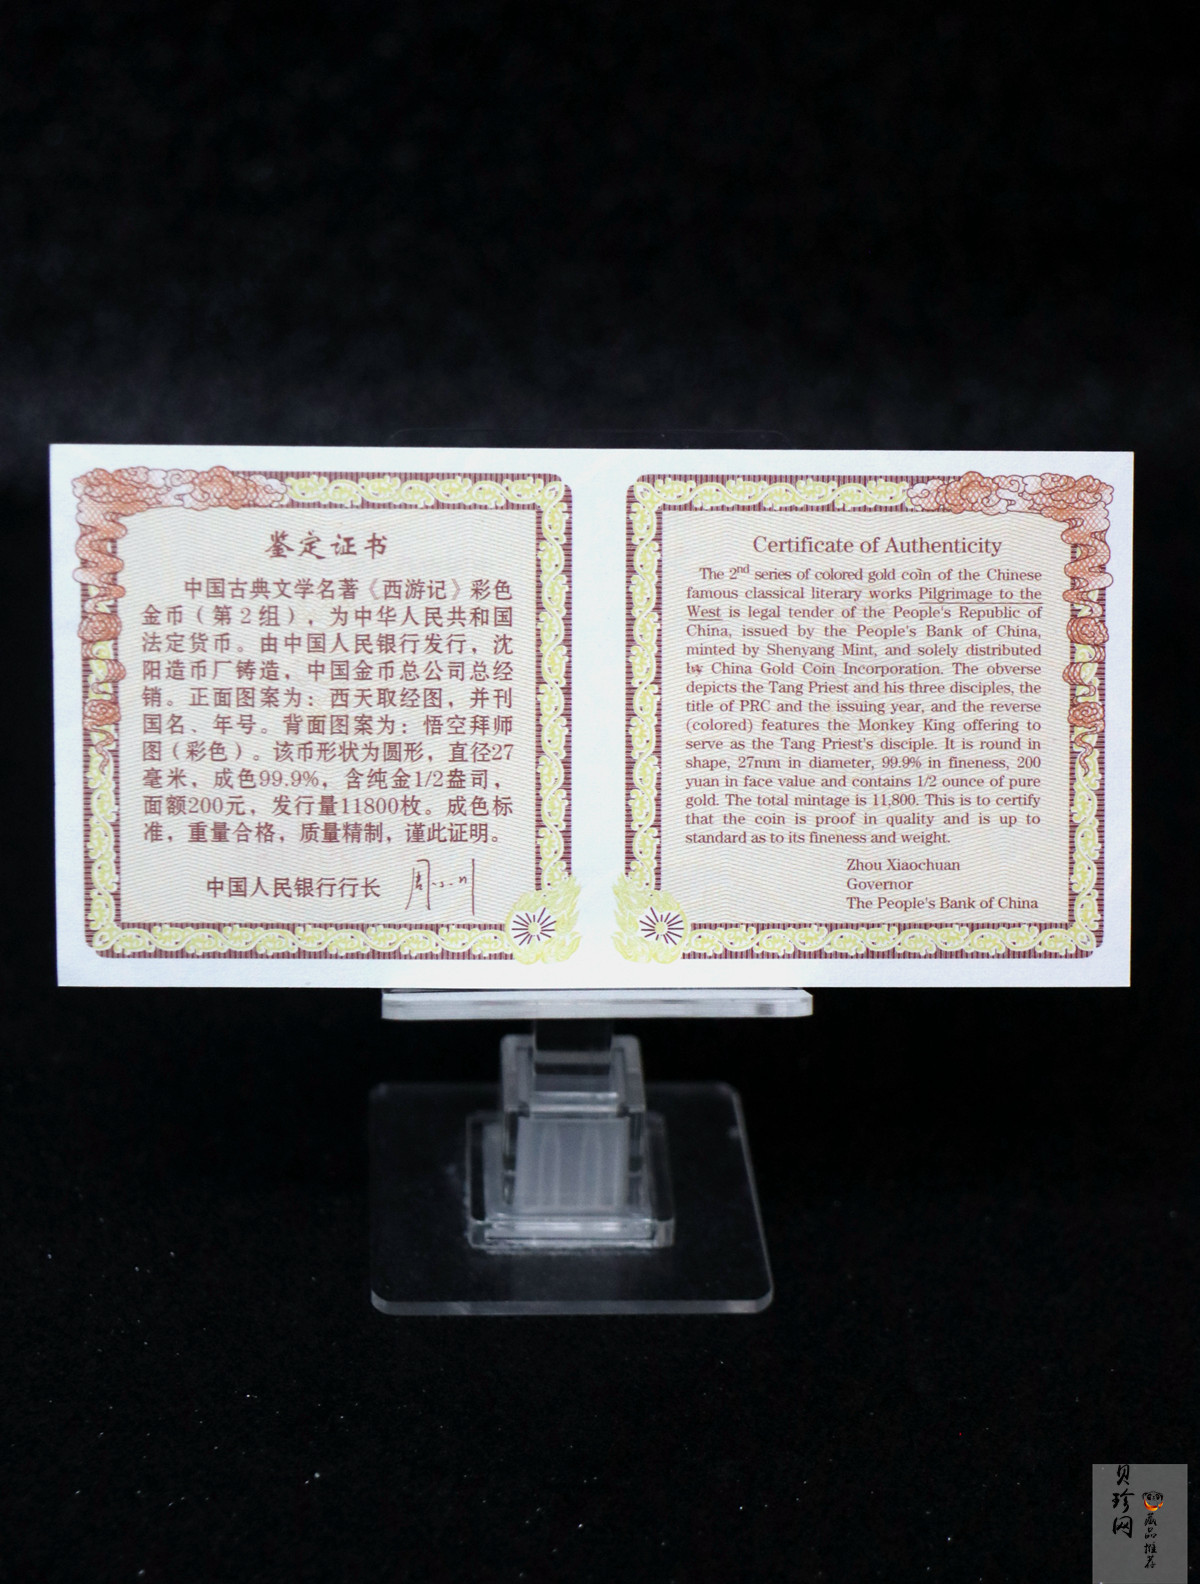 鉴定证书
中国古典文学名著《西游记》彩色
金币（第2组），为中华人民共和国
法定货币。由中国人民银行发行，沈
阳造币厂铸造，中国金币总公司总经
销。正面图案为：西天取经图，并刊
国名、年号。背面图案为：悟空拜师
图（彩色）。该币形状为圆形，直径27
毫米，成色99.9%，含纯金1/2盎司，
面额200元，发行量11800枚。成色标
准，重量合格，质量精制，谨此证明。
中国人民银行行长 周小川
Certificate of Authenticity
The 2nd series of colored gold coin of the Chinese
famous classical literary works Pilgrimage to the
West is legal tender of the People's Republic of
China, issued by the People's Bank of China,
minted by Shenyang Mint, and solely distributed
by China Gold Coin Incorporation. The obverse
depicts the Tang Priest and his three disciples, the
title of PRC and the issuing year, and the reverse
(colored) features the Monkey King offering to
serve as the Tang Priest's disciple. It is round in
shape, 27mm in diameter, 99.9% in fineness, 200
yuan in face value and contains 1/2 ounce of pure
gold. The total mintage is 11,800. This is to certify
that the coin is proof in quality and is up to
standard as to its fineness and weight.
Zhou Xiaochuan
Governor
The People's Bank of China
贝珍网
藏品推荐